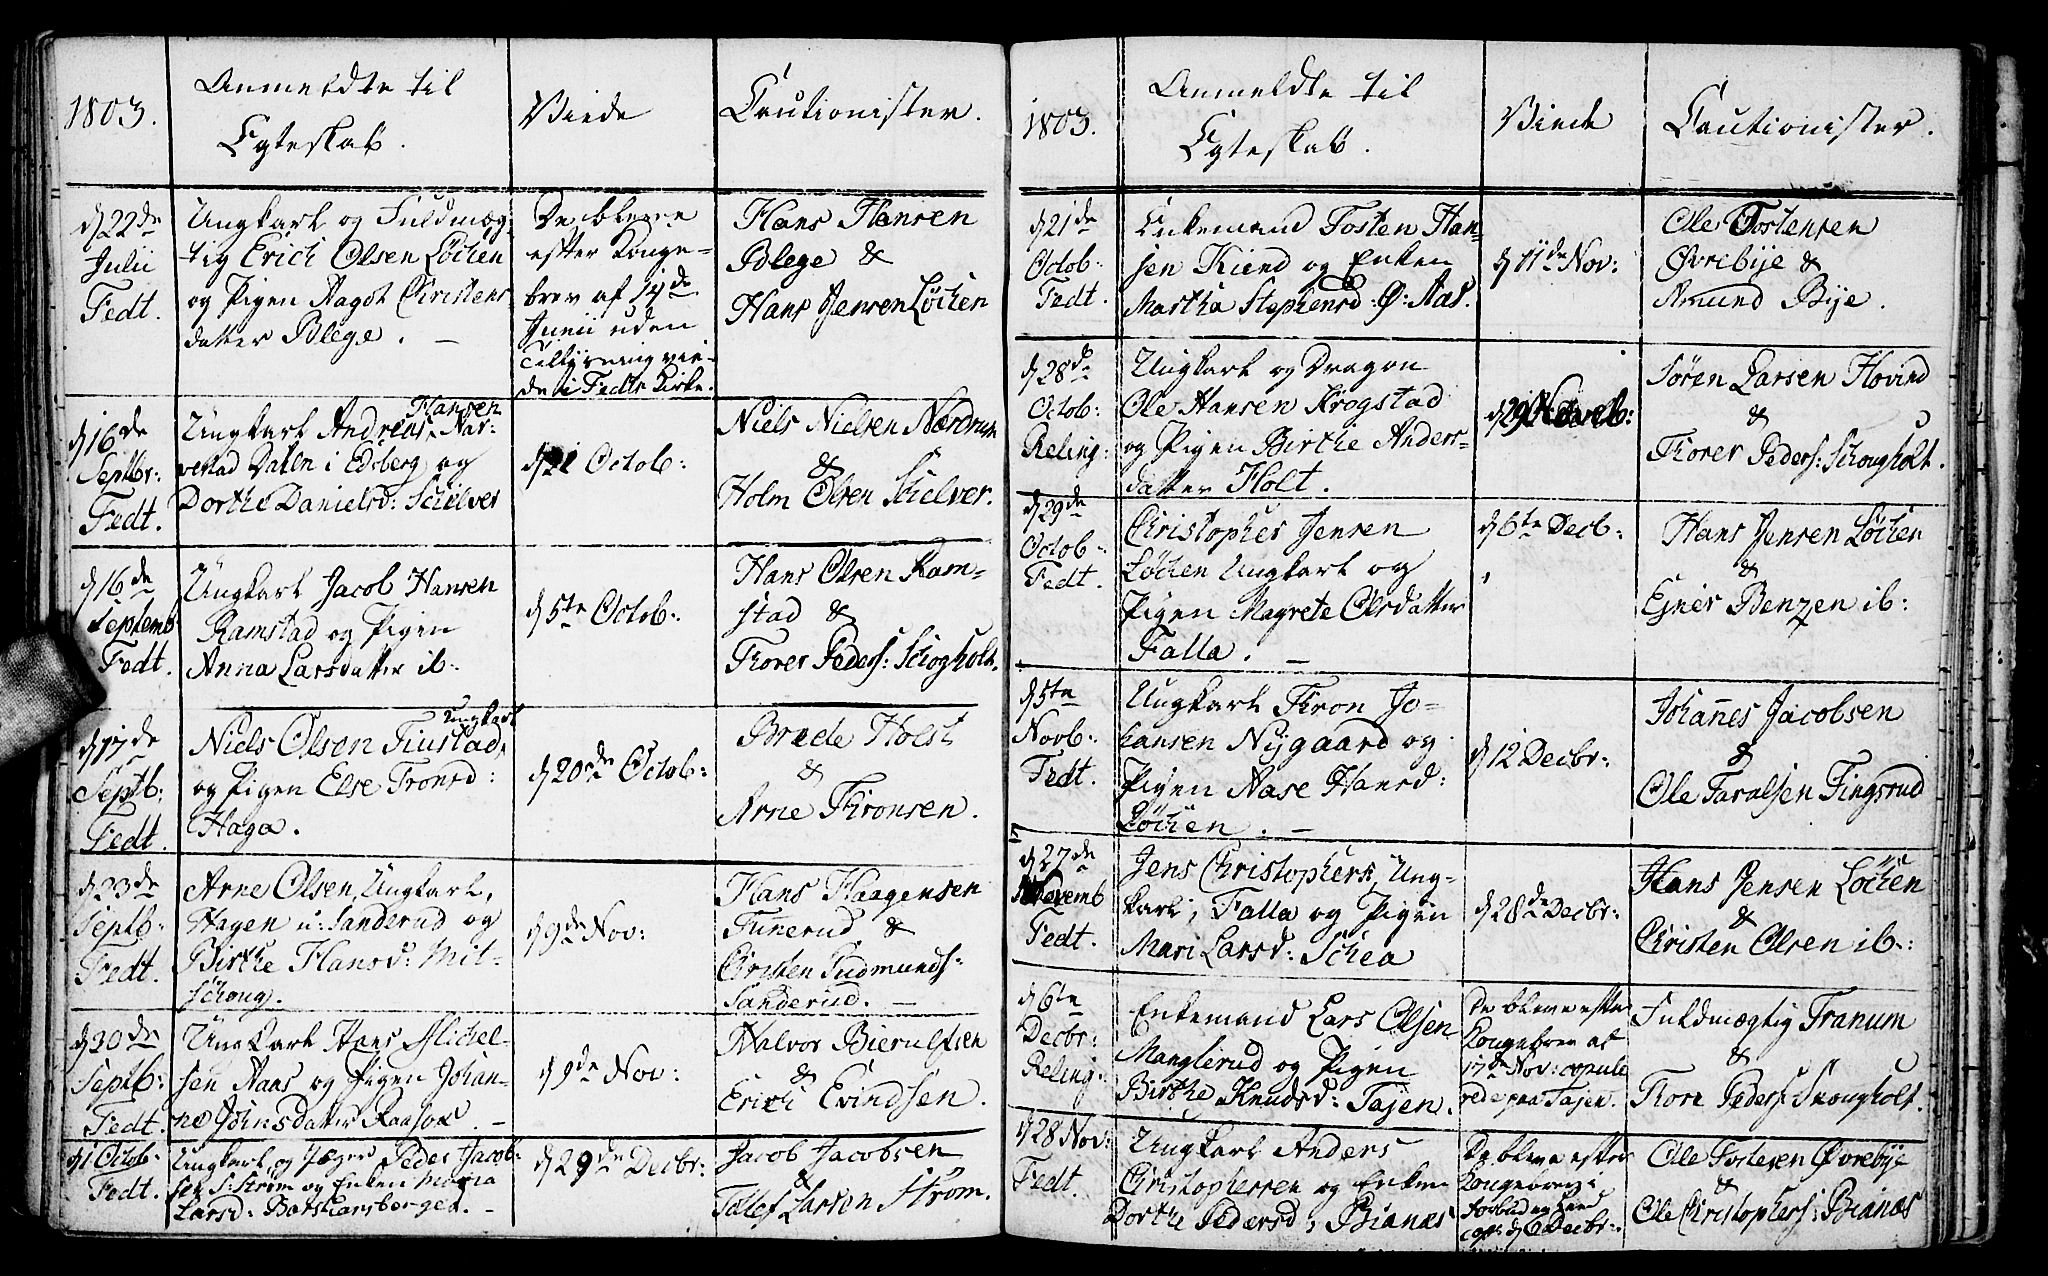 1803.
Anmeldte til
Egteskab.
Viede
Cautionister.
d 22de
Julii
Fedt.
Ungkarl og Fuldmæg-
tig Erich Olsen Løchen
og Pigen Aagot Christens
datter Blege. —
De bleve
efter Konge-
brev af 14de
Junii uden
Tillysning vie-
de i Fedts Kirke.
Hans Hansen
Blege &
Hans Jensen Løchen
d 16de
Septbr:
Fedt.
Hansen
Ungkarl Andreas Nar-
vestad Dalen i Edsberg og
Dorthe Danielsd: Schelver
d 21 Octob:
Niels Nielsen Nærdrum
&
Holm Olsen Schelver.
d 16de
Septemb
Fedt.
Ungkarl Jacob Hansen
Ramstad og Pigen
Anna Larsdatter ib:
d 5te Octob:
Hans Olsen Ram-
stad &
Thorer Peders: Schogholt.
d 17de
Septb:
Fedt.
Ungkarl
Niels Olsen Tiustad
og Pigen Else Tronsd:
Haga.
d 20de Octob:
Brede Holst
&
Arne Thronsen.
d 23de
Septb:
Fedt.
Arne Olsen, Ungkarl,
Hagen u: Sanderud og
Birthe Hansd: Mit-
schoug.
d 9de Nov:
Hans Haagensen
Funerud &
Christen Gudmunds:
Sanderud. —
d 30de
Septb:
Fedt.
Ungkarl Hans Michel-
sen Aas og Pigen Johan-
ne Jonsdatter Raasok. —
d 9de Nov:
Halvor Bierulfsen
&
Erich Evindsen.
d 1 Octob:
Fedt.
Ungkarl og Jæger Peder Jacob-
sen S: Strøm og Enken Maria
Larsd: Batskiarsberget. —
d 29de Decbr:
Jacob Jacobsen
&
Tollef Larsen Strøm.
1803.
Anmeldte til
Egteskab.
Viede
Cautionister.
d 21de
Octob:
Fedt.
Enkemand Tosten Han-
sen Kiend og Enken
Martha Stephensd: Ø: Aas.
d 11de Nov:
Ole Tostensen
Øvrebye &
Amund Bye.
d 28de
Octob:
Reling:
Ungkarl og Dragon
Ole Hansen Krogstad
og Pigen Birthe Anders-
datter Holt.
d 29
Søren Larsen Hovind
&
Thorer Peders: Schougholt.
d 29de
Octob:
Fedt.
Christopher Jensen
Løchen Ungkarl og
Pigen Magrete Olsdatter
Falla. —
d 6te Decb:
Hans Jensen Løchen
&
Ejner Benzen ib:
d 5te
Novb:
Fedt.
Ungkarl Thron Jo-
hansen Nygaard og
Pigen Aase Hansd:
Løchen. —
d 12 Decbr:
Johannes Jacobsen
&
Ole Taralsen Tingsrud
d 27de
Novemb
Fedt.
Jens Christophers, Ung-
karl, Falla og Pigen
Mari Larsd: Schea
d 28de Decbr:
Hans Jensen Løchen
&
Christen Olsen ib:
d 6te
Decbr:
Reling:
Enkemand Lars Olsen
Manglerud og Pigen
Birthe Knudsd: Tajen.
De bleve efter
Kongebrev af
17de Nov: copule
rede paa Tajen.
Fuldmægtig Tranum
&
Thore Peders: Skougholt.
d 28 Nov:
Fedt.
Ungkarl Anders
Christophersen og Enken
Dorthe Pedersd: Bianæs
De bleve efter
Kongebrev i
cop: d 6 Decbr:
Ole Tostensen Øvrebye
&
Ole Christophers: Bianæs